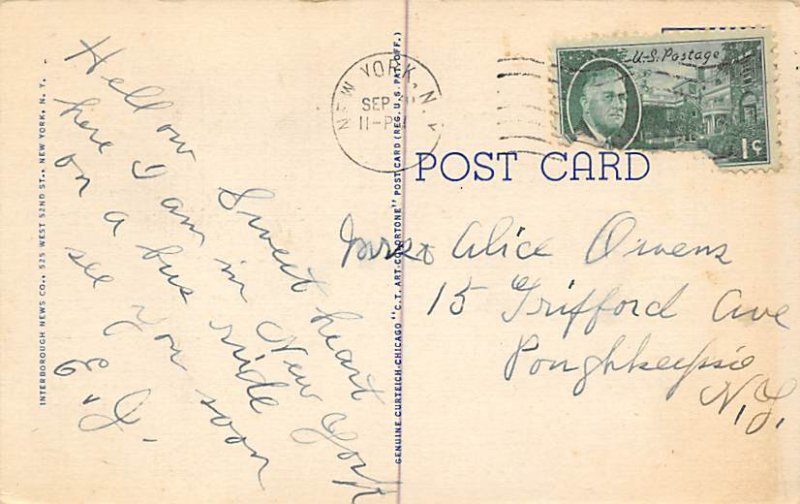 Hellow Sweet heart
here I am in New York
on a bus ride
see you soon
E. J.
INTERBOROUGH NEWS CO., 525 WEST 52ND ST., NEW YORK, N. Y.
GENUINE CURTEICH-CHICAGO "C.T. ART-COLORTONE" POST CARD (REG. U.S. PAT. OFF.)
NEW YORK, N.
SEP
11-P
U.S. Postage
1¢
POST CARD
Mrs Alice Owens
15 Grifford Ave
Poughkeepsie
N.Y.